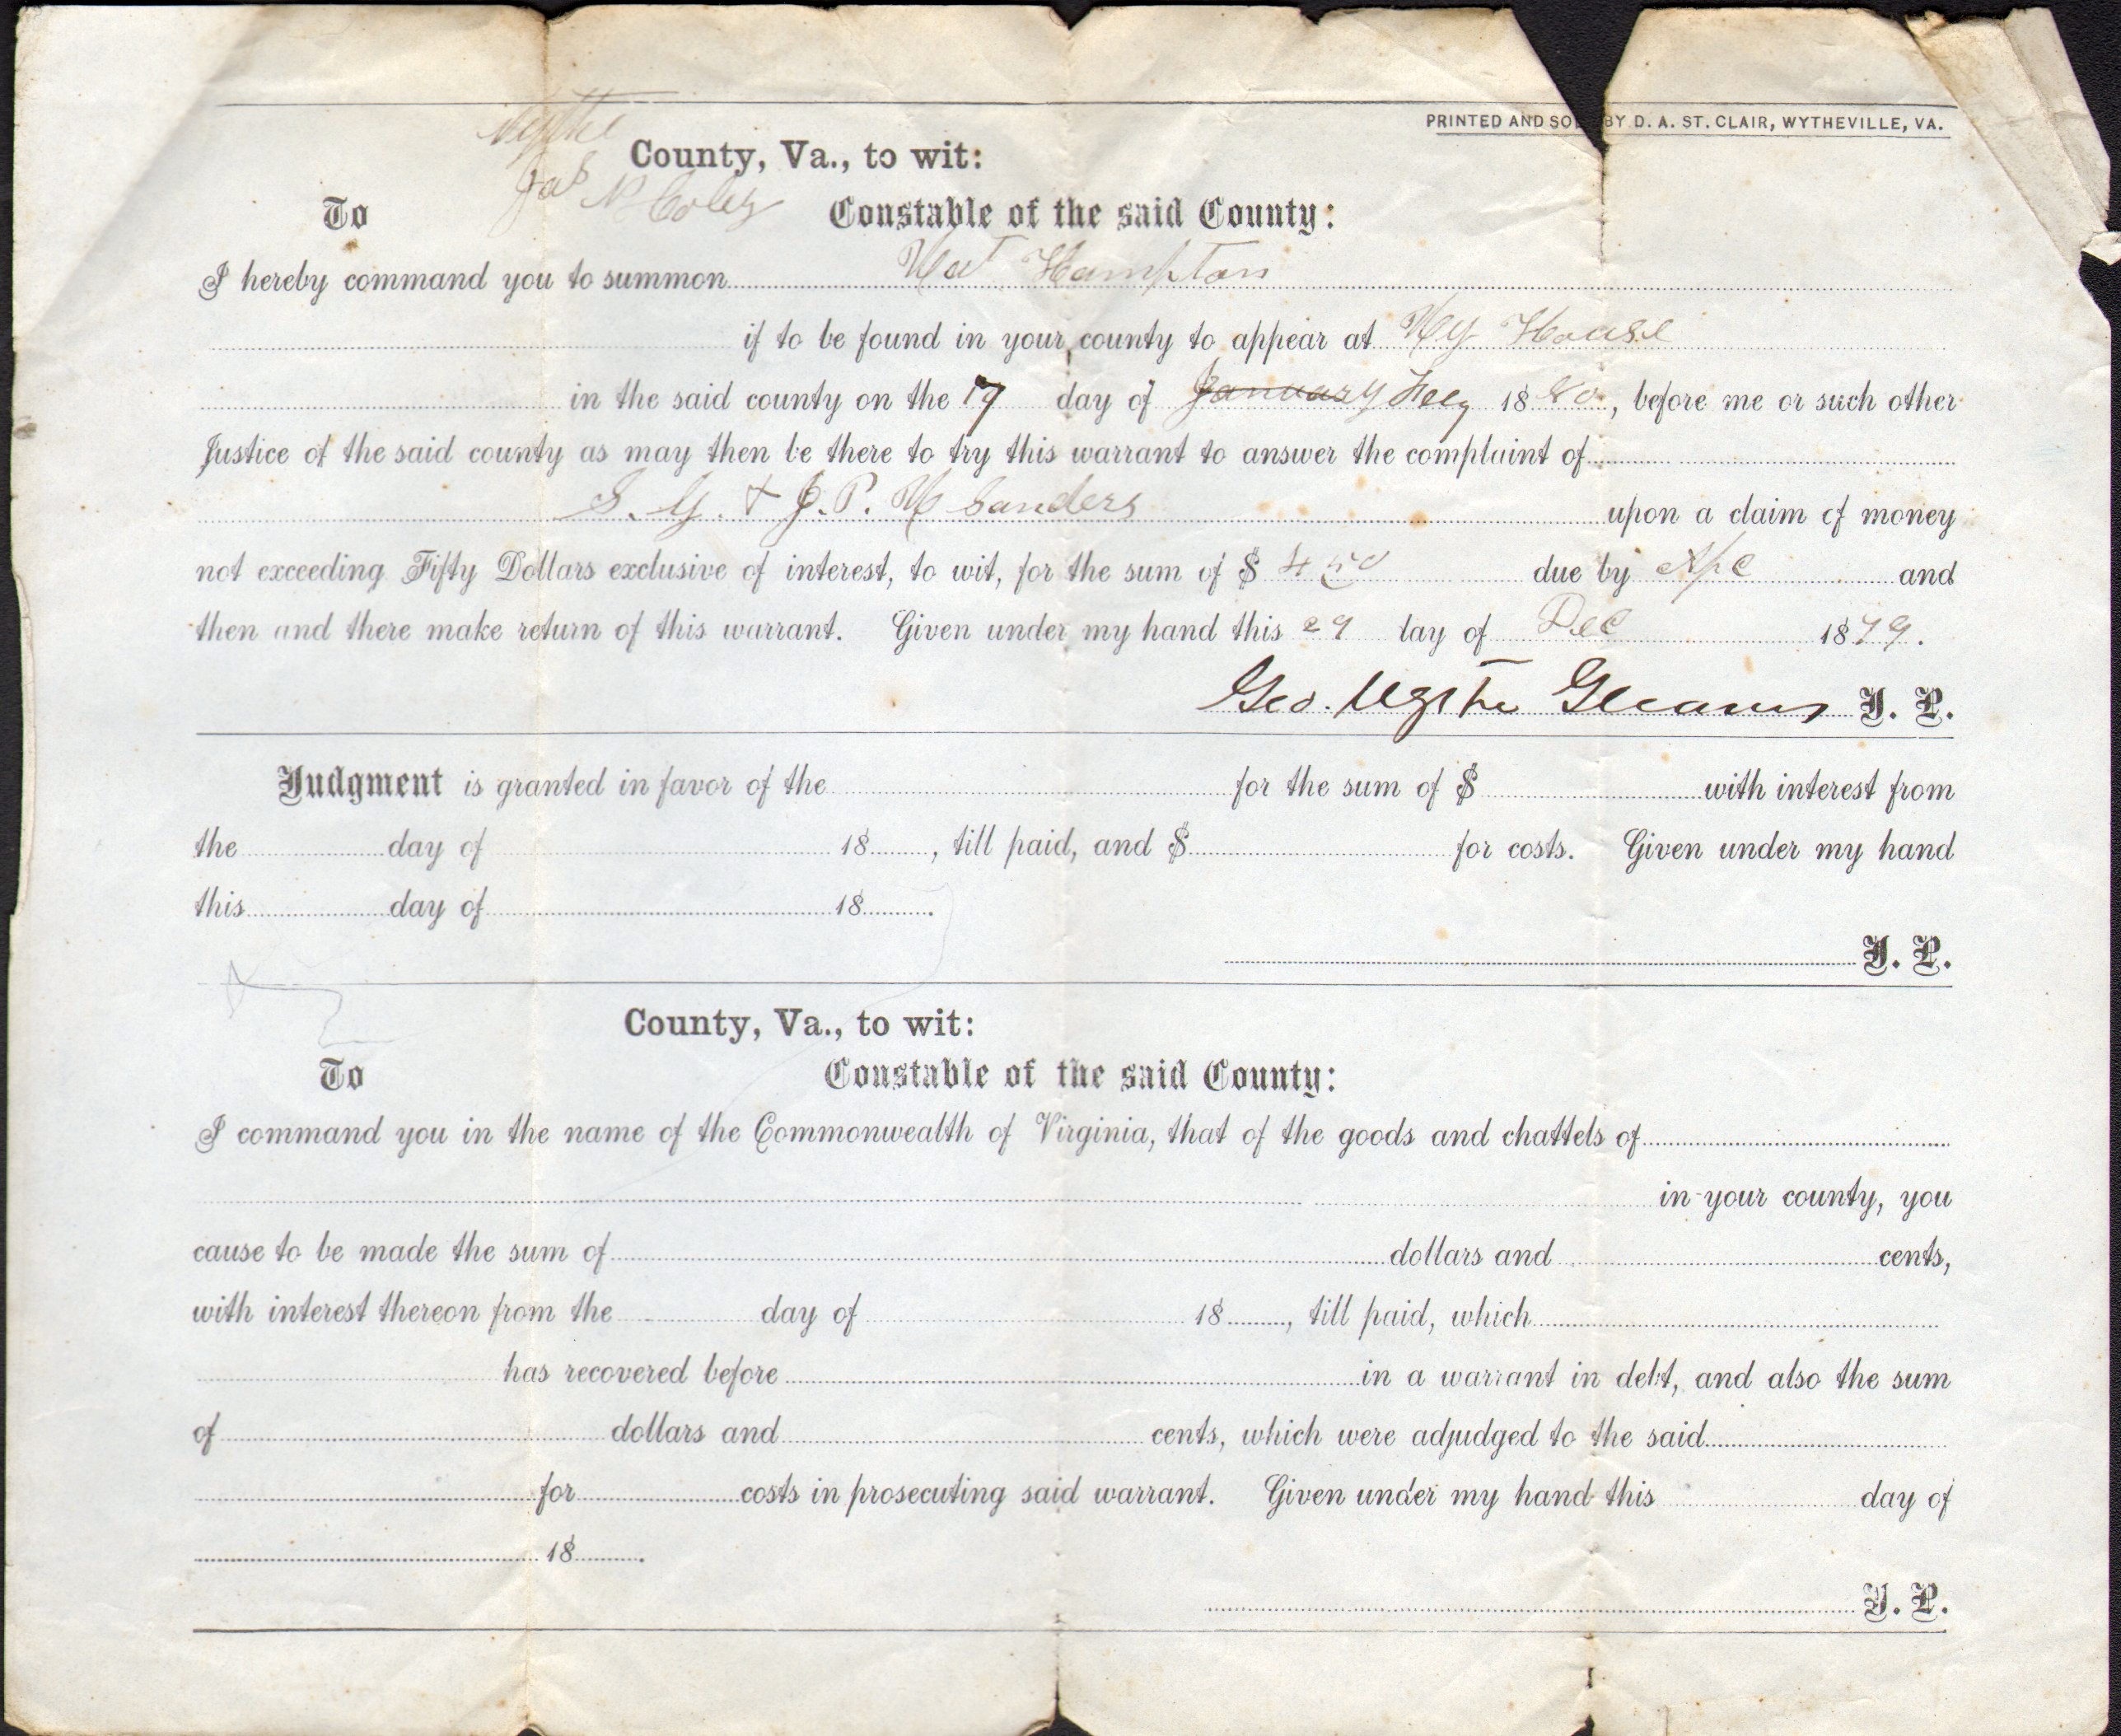 PRINTED AND SOLD BY D. A. ST. CLAIR, WYTHEVILLE, VA.
Wythe County, Va., to wit:
To Jas N Coley Constable of the said County:
I hereby command you to summon Wat Hampton
if to be found in your county to appear at My House
in the said county on the 17 day of January Feby 1880, before me or such other
Justice of the said county as may then be there to try this warrant to answer the complaint of
S. G. & J. P. M Sanders upon a claim of money
not exceeding Fifty Dollars exclusive of interest, to wit, for the sum of $ 4 50 due by and
then and there make return of this warrant. Given under my hand this 29 day of Dec 1879.
Geo. Wythe J. P.
Judgment is granted in favor of the for the sum of $ with interest from
the day of 18 , till paid, and $ for costs. Given under my hand
this day of 18 .
J. P.
County, Va., to wit:
To Constable of the said County:
I command you in the name of the Commonwealth of Virginia, that of the goods and chattels of
in your county, you
cause to be made the sum of dollars and cents,
with interest thereon from the day of 18 , till paid, which
has recovered before in a warrant in debt, and also the sum
of dollars and cents, which were adjudged to the said
for costs in prosecuting said warrant. Given under my hand this day of
18 .
J. P.